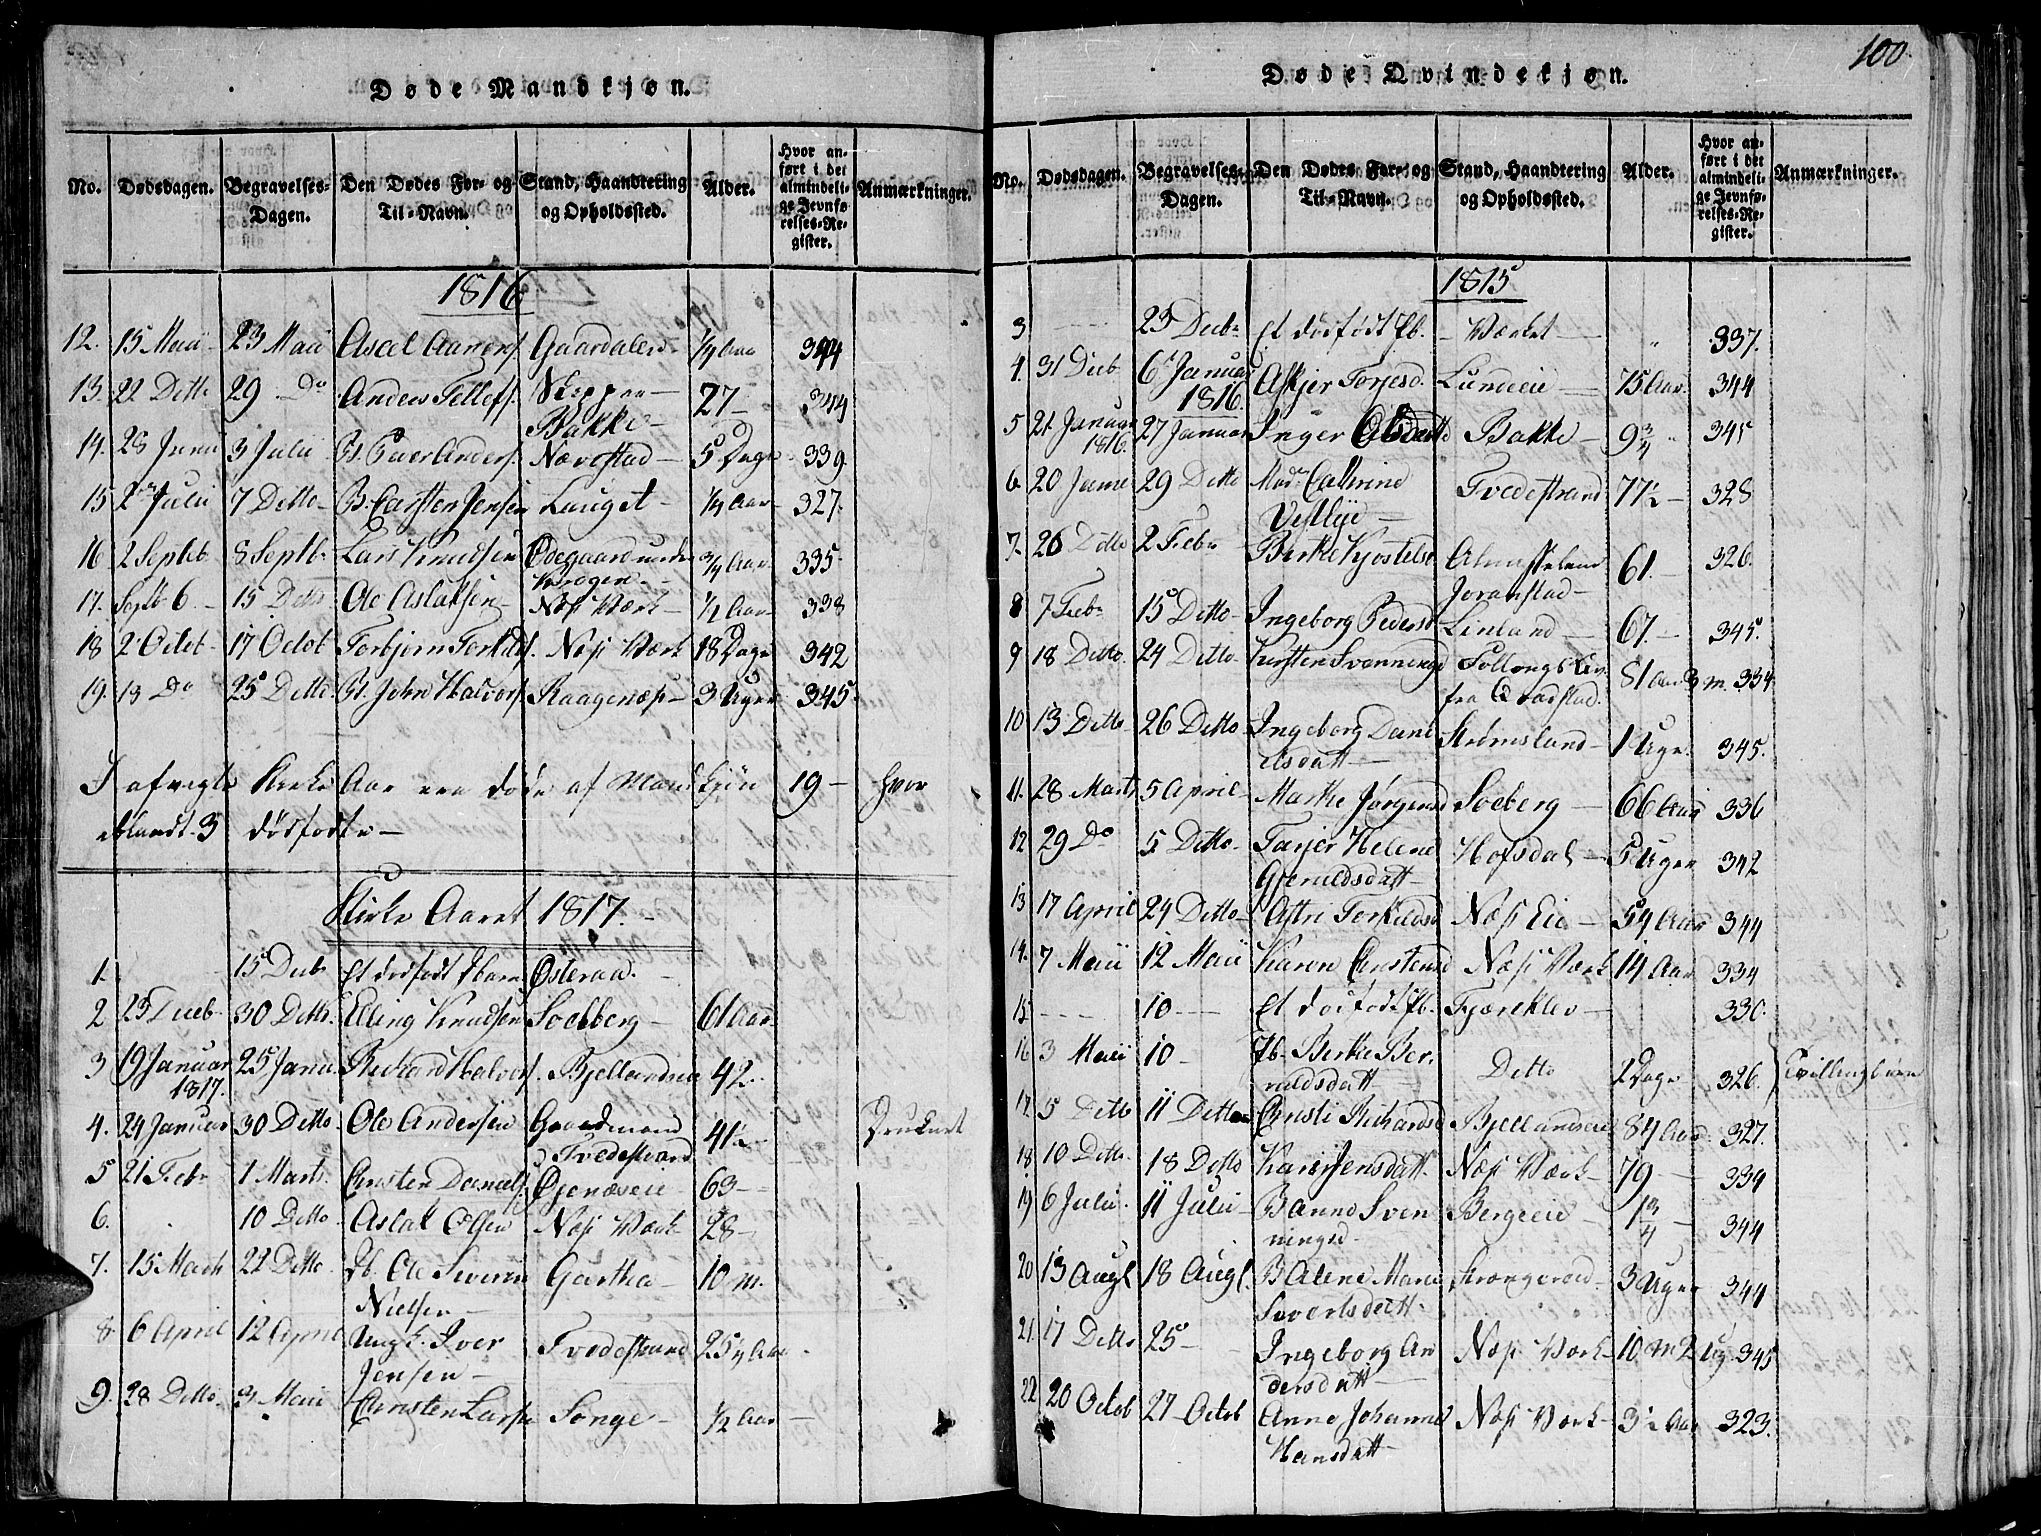 Døde Mandkjøn.
No. Dødsdagen. Begravelses-Dagen. Den Dødes For- og Til-Navn. Stand, Haandtering og Opholdssted. Alder. Hvor anført i det almindelige Jevnførelses-Register. Anmærkninger.
1816
12. 15 Maii 23 Maii Ascel Aanons. Gaardalen ¼ Aar 344
13. 22 Ditto 29 Do Anders Tellefs. Bakke 27 344
14. 28 Junii 3 Julii B. Peer Anders. Nævestad 5 Dage 339
15 2 Julii 7 Ditto B. Carsten Jensen Lauget ¼ Aar 327
16 2 Septb 8 Septb. Lars Knudsen Ødegaard under Krogen ¾ Aar 335
17. Septb 6 15 Ditto Ole Aslaksen Næs Værk ½ Aar 338
18 2 Octob 17 Octob Torbjørn Terkilds. Næs Værk 18 Dage 342
19. 13 Do 25 Ditto B. John Halvors. Kragenæs 3 Uger 345
I afvigte Kirke Aar ere døde af Mandkjøn 19 hvor
iblandt 3 dødfødte
Kirke Aaret 1817.
1. 15 Decb Et dødfødt Barn Østeraa
2 23 Decb 30 Ditto Elling Knudsen Soelberg 61 Aar
3 19 Januar 1817. 25 Janu. Rickard Halvors. Bjellandseie 42
4. 24 Januar 30 Ditto Ole Andersen Gaardmand Tvedestrand 41½ Druknet
5 21 Febr 1 Marts Christen Daniels. Øjenæseie 63
6. 10 Ditto Aslak Olsen Næs Værk 28
7. 15 Marts 22 Ditto Ole Severin Nielsen Gartha 10 m.
8. 6 April 12 April Ungk. Iver Jensen Tvedestrand 25¼ Aar
9. 28 Ditto 3 Maii Christen Larse Songe ½ Aar
100.
Døde Qvindekjøn.
No. Dødsdagen. Begravelses-Dagen. Den Dødes For- og Til-Navn. Stand, Haandtering og Opholdssted. Alder. Hvor anført i det almindelige Jevnførelses-Register. Anmærkninger.
1815
3 23 Decbr Et dødfødt Værket 337.
4. 31 Decb 6 Januar 1816. Askjer Torjesd. Lundeeie 75 Aar 344
5 21 Januar 1816. 27 Januar Inger Olsdatt Bakke 9¾ 345
6 20 Janu 29 Ditto Mad. Cathrine Vestlye Tvedestrand 77½ 328
7. 26 Ditto 2 Febr Berthe Kjøstelsd Joranstad 61. 326.
8 7 Febr 15 Ditto Ingeborg Pedersd Linland 67. 345.
9 18 Ditto 24 Ditto Kirsten Svenningsd fra Qvastad. 81 Aar 3 m. 334
10 13 Ditto 26 Ditto Ingeborg Danielsdatt Strømsland 1 Uge 345.
11. 28 Marts 5 April Marthe Jørgensd Soeberg 66 Aar 336
12 29 Do 5 Ditto Tarjer Helene Gjeruldsdatt Hofsdal 5 Uger 342
13 17 April 24 Ditto Astri Terkildsd Næs Eie 54 Aar 344
14. 7 Maii 12 Maii Karen Christensd Næs Værk 14 Aar 334
15 10 Et dødfødt Fjæreklev 330.
16 3 Maii 10 Berthe Beruldsdatt Ditto 2 Dage 326. Tvillingbørn
17. 5 Ditto 11 Ditto Christi Rickardsd Bjellandseie 84 Aar 327.
18 10 Ditto 18 Ditto Kari Jensdatt Næs Værk 79 339
19 6 Julii 11 Julii B Anne Svenningsd Bergeeie 1¾ 344
20 13 Augl 18 Augl. B Alene Marie Sivertsdatt Krogeroed 3 Uger 344
21. 17 Ditto 25 Ingeborg Andersdatt Næs Værk 10 m 2 Ug. 345
22. 20 Octob 27 Octob Anne Johanne Hansdatt Næs Værk 3½ Aar 323.